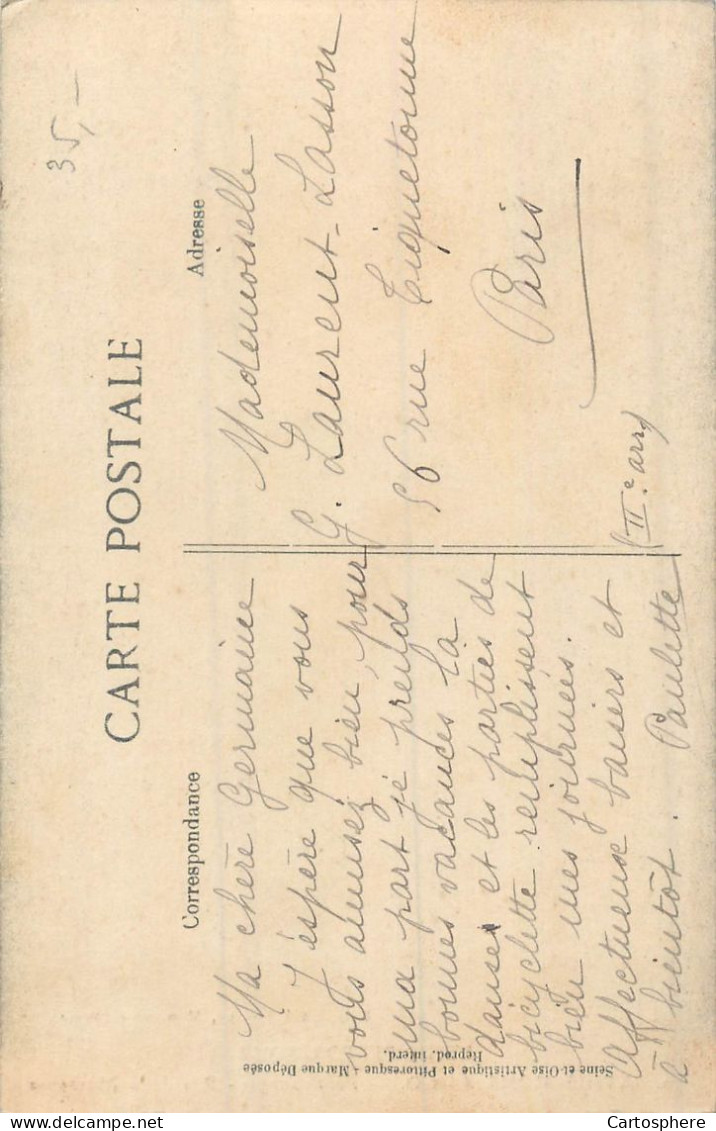 35,-
CARTE POSTALE
Correspondance
Adresse
Ma chère Germaine
J'espère que vous
vous amusez bien, pour
ma part je prends
bonnes vacances la
danse et les parties de
bicyclette remplissent
bien mes journées.
Affectueux baisers et
à bientôt. Paulette
Mademoiselle
G. Laurent-Lasson
56 rue Tiquetonne
Paris
(II e arr)
Seine-et-Oise Artistique et Pittoresque - Marque Déposée
Reprod. interd.
Delcampe.net
Cartosphere